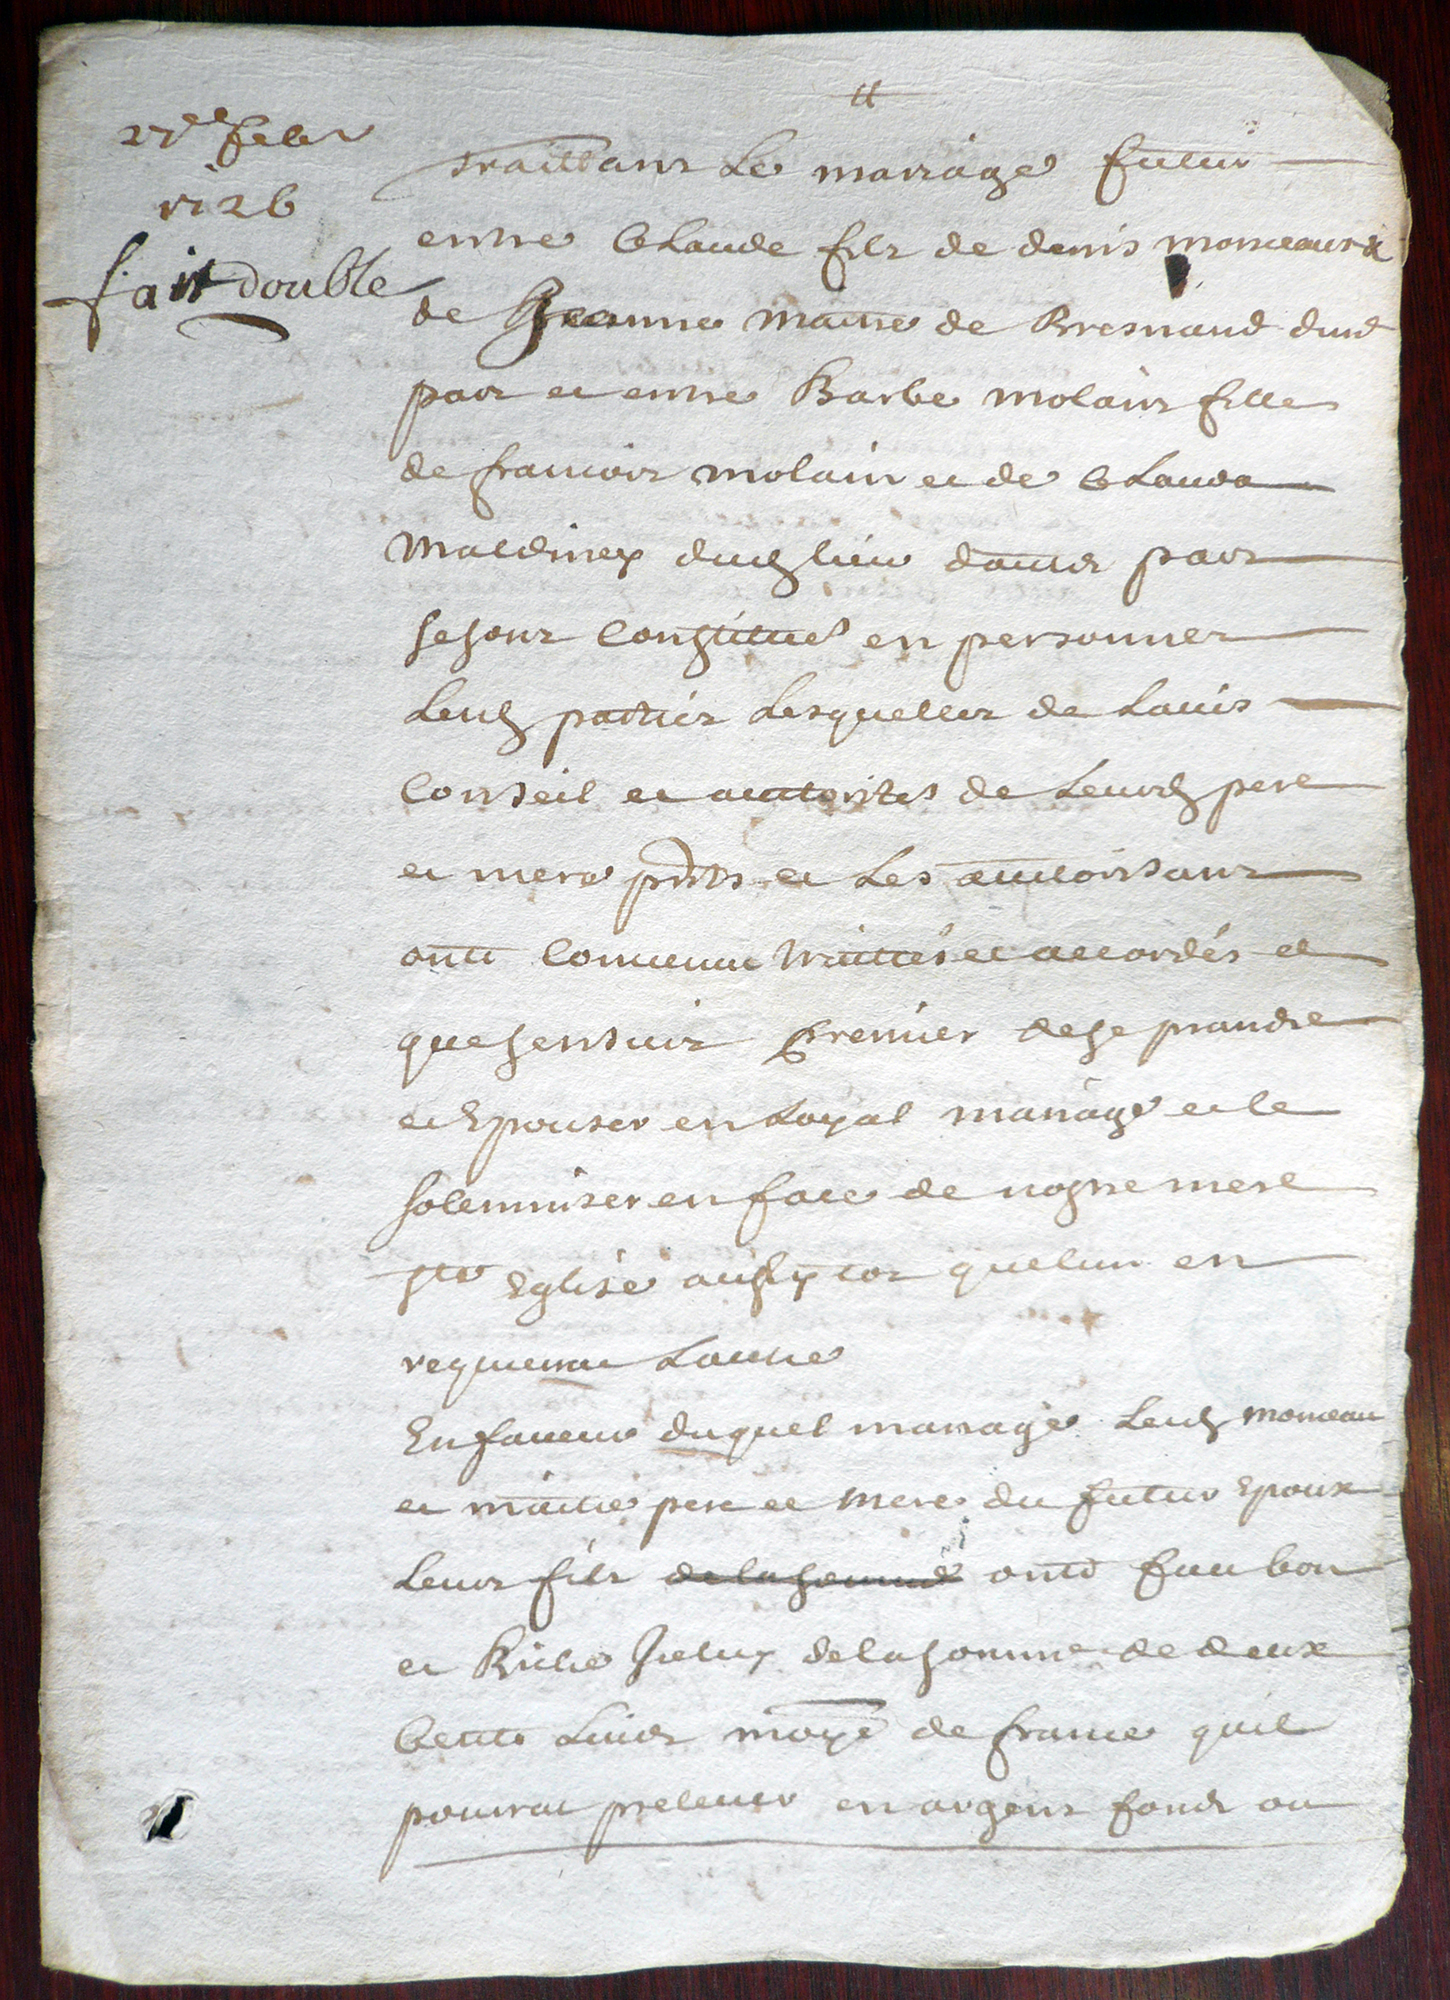 27e febr
1726
fait double
traittant Le mariage futur
entre Claude fils de denis monceaux &
de Jeanne maitre de Bresnand dune
part et entre Barbe molain fille
de francois molain et de Clauda
Maldiney dud lieu dautre part
se sont Constitué en personnes
Lesd parties Lesquelles de Lavis
Conseil et auttorités de Leursd pere
et mere pnts et Les auttorisant
ont Convenu traittés et accordés ce
que sensuit premier de se prandre
et Epouser en Loyal mariage et le
solemniser en face de nostre mere
ste Eglise aussy tot quelun en
requerra Lautre
En faveur duquel mariage Lesd monceau
et maitre pere et mere du futur Epoux
Leur fils de la somme ont fait bon
et Riche Jceluy de la somme de deux
Cents Livres moñe de france quil
pourrat prelever en argent fond ou